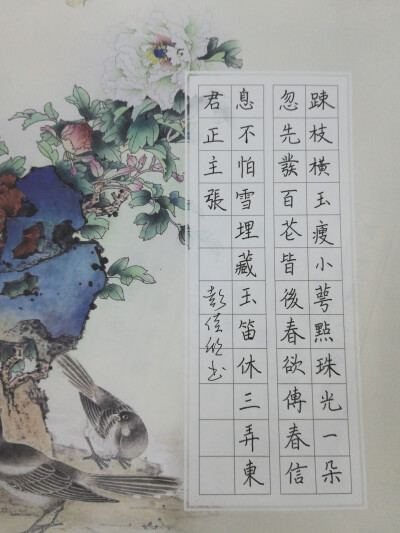 踈枝橫玉瘦小萼點珠光一朵
忽先發百花皆後春欲傳春信
息不怕雪埋藏玉笛休三弄東
君正主張
彭佳欣书